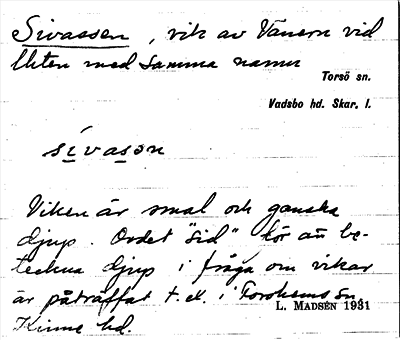 Sivassen, vik av Vänern vid
lliten med samma namn
Torsö sn.
Vadsbo hd. Skar. l.
sívasən
Viken är smal och ganska
djup. Ordet "sid" för att be-
teckna djup i fråga om vikar
är påträffat t.ex. i Forshems sn,
L. MADSÉN 1931
Kinne hd.